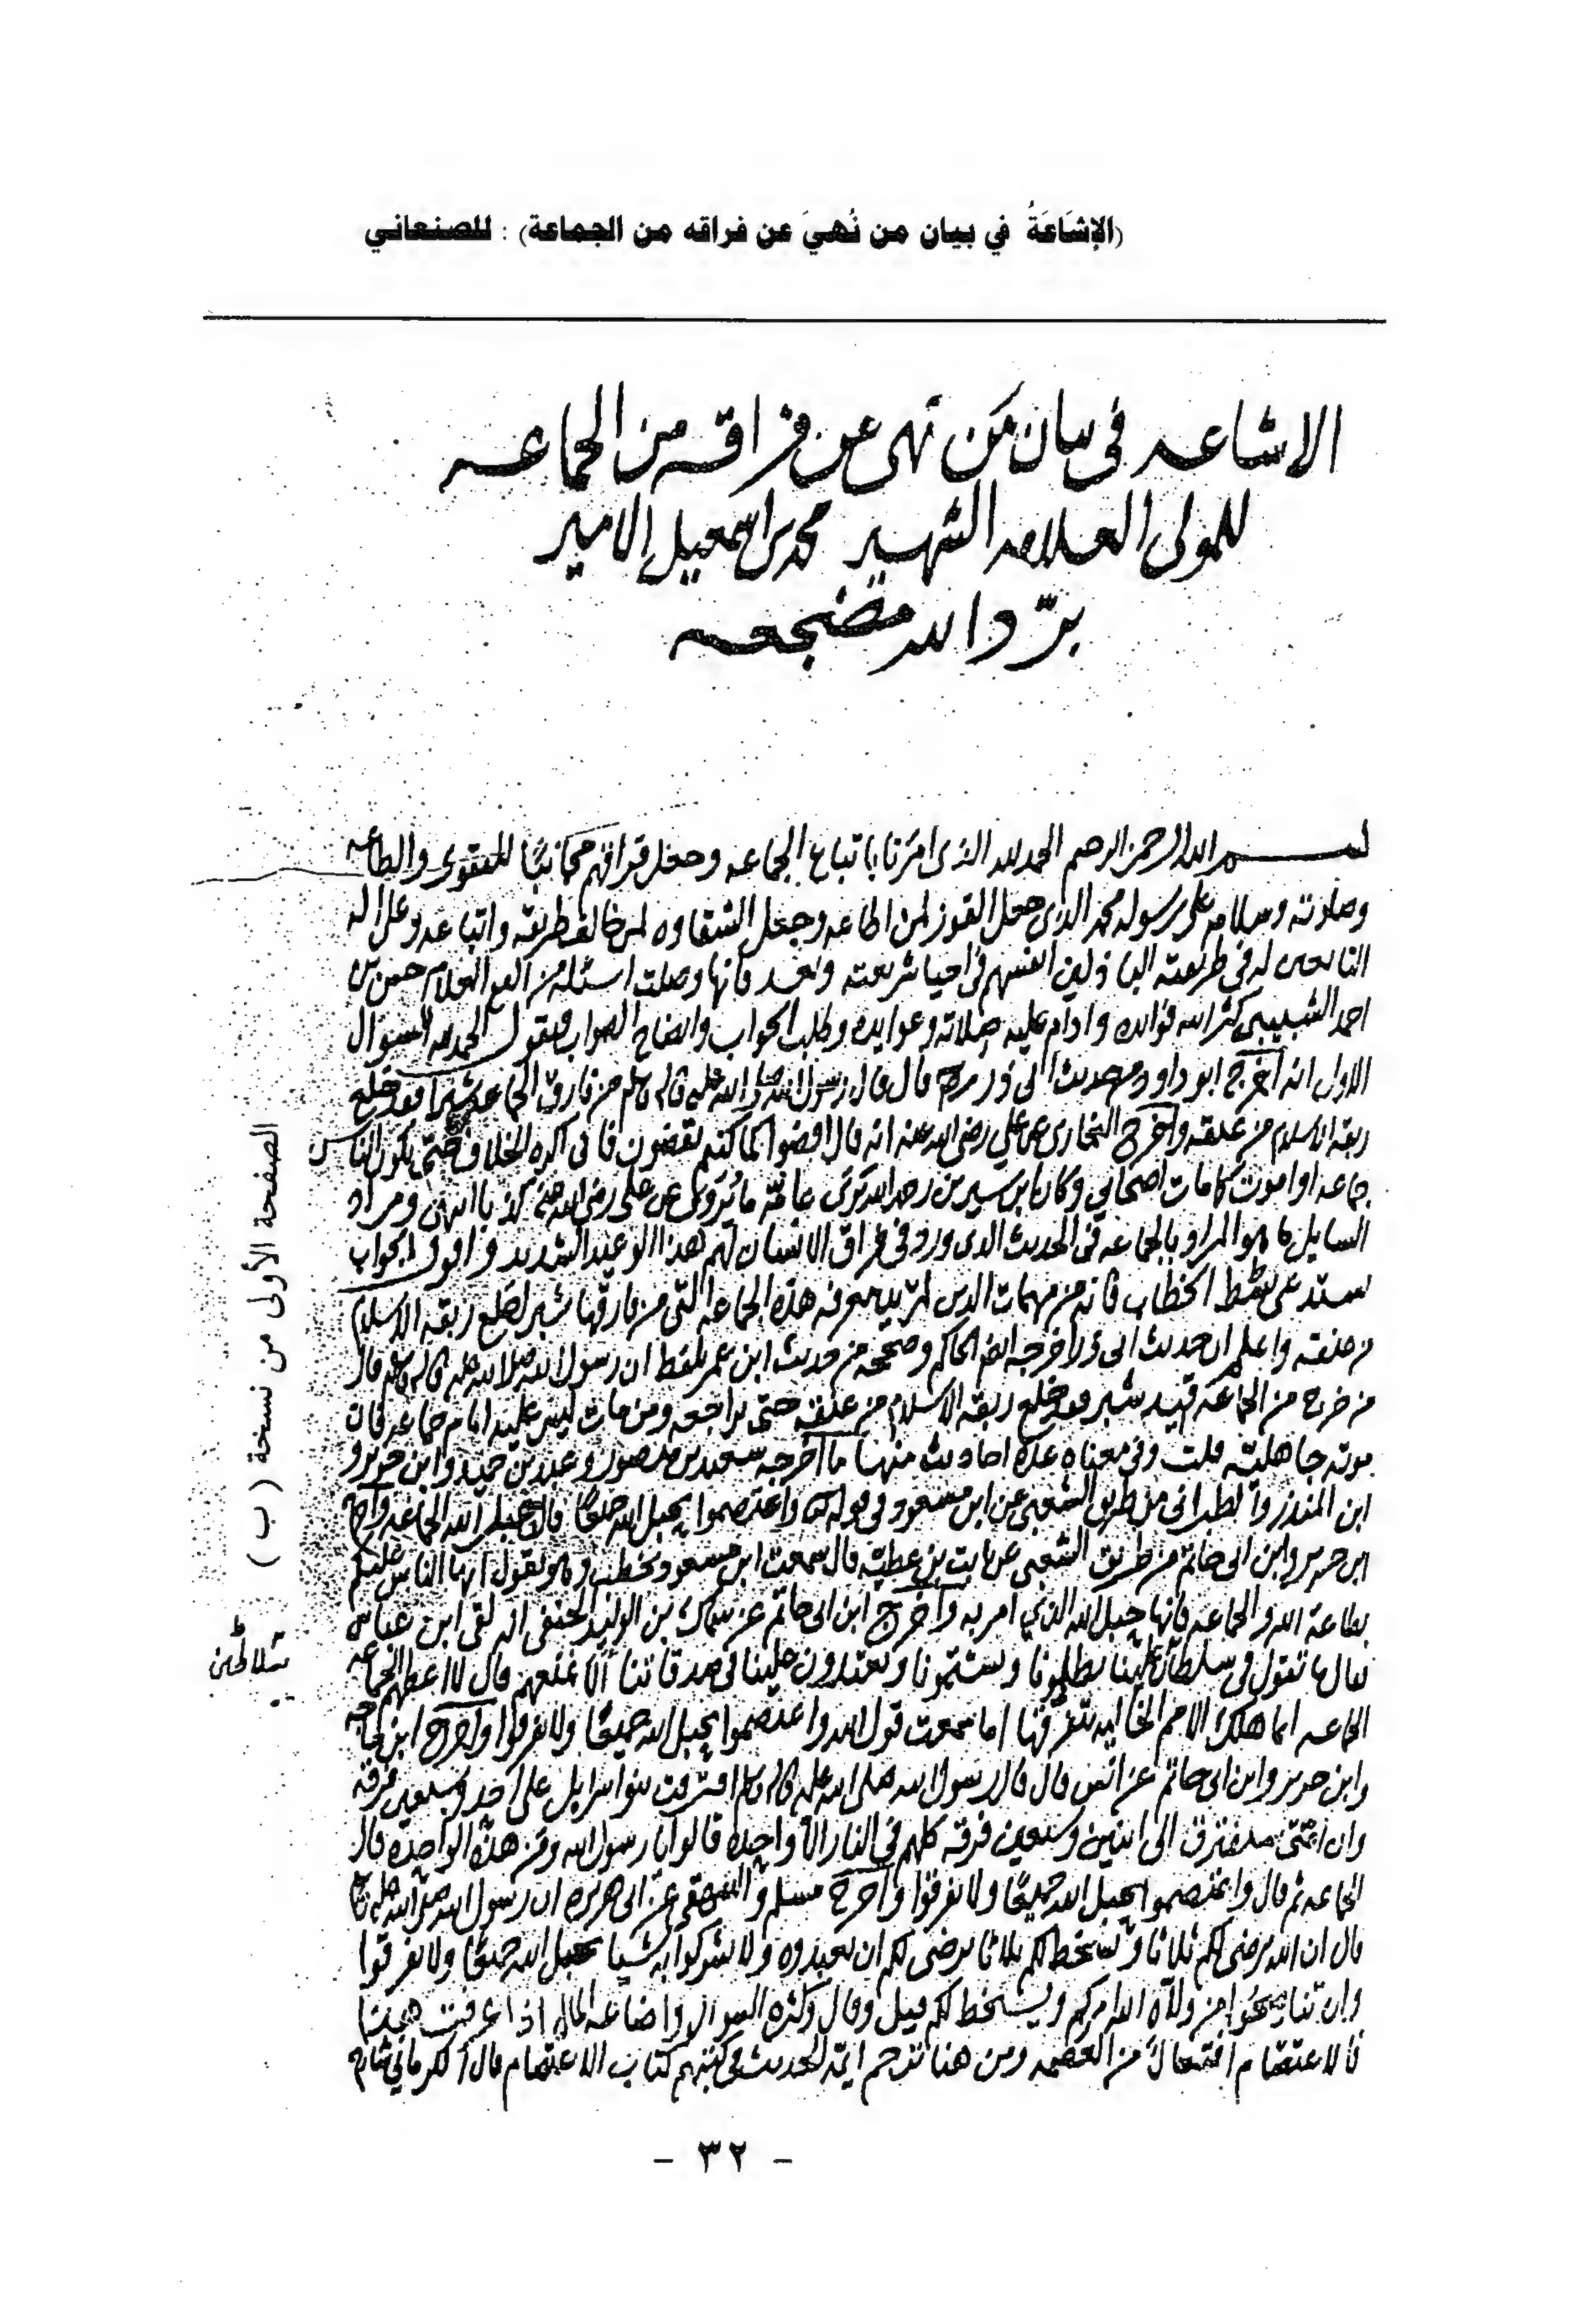 (الإشَاعَةُ في بيان من نُهيَ عن فراقه من الجماعة) : للصنعاني
الاشاعه في بيان مَن نهى عن فراقه من الجماعه
للمولى العلامه الشهير محمد بن اسمعيل الامير
برّد الله مضجعه
بسم الله الرحمن الرحيم الحمد لله الذي امرنا باتباع الجماعه وجعل فراقهم مجانبًا للتقوى والطاعه
وصلوته وسلامه على رسوله محمد الذي جعل الفوز لمن اطاعه وجعل الشقاوه لمن خالف طريقه واتباعه وعلى اله
التابعين له في طريقته الباذلين انفسهم في احيا شريعته وبعد فانها وصلت اسئله من العلام حسن بن
احمد الشبيبي كثر الله فوايده وادام عليه صلاته وعوايده وطلب الجواب وايضاح الصواب فنقول الحمد لله السوال
الاول انه اخرج ابو داود من حديث ابي ذر قال قال رسول الله صلى الله عليه واله وسلم من فارق الجماعه شبرا فقد خلع
ربقه الاسلام من عنقه واخرج البخاري عن علي رضي الله عنه انه قال اقضوا كما كنتم تقضون فاني اكره الخلاف حتى يكون الناس
جماعه او اموت كما مات اصحابي وكان ابن سيرين رحمه الله يرى عامّة ما يُروى عن علي رضي الله عنه كذبا انتهى ومراد
السايل ما هو المراد بالجماعه في الحديث الذي ورد في فراق الانسان لهم هذا الوعيد الشديد واقول الجواب
يستدعي بسط الخطاب فانه من مهمات الدين معرفه هذه الجماعه التي من فارقها شبر الخلع ربقه الاسلام
من عنقه واعلم ان حديث ابي ذر اخرجه ايضا الحاكم وصححه من حديث ابن عمر بلفظ ان رسول الله صلى الله عليه واله وسلم قال
من خرج من الجماعه قيد شبر فقد خلع ربقه الاسلام من عنقه حتى يراجعه ومن مات ليس عليه امام جماعه فان
موته جاهليّه قلت وفي معناه عدة احاديث منها ما اخرجه سعيد بن منصور وعبد بن حميد وابن جرير و
ابن المنذر والطبراني من طريق الشعبي عن ابن مسعود في قوله واعتصموا بحبل الله جميعًا قال حبل الله الجماعه واخرج
ابن جرير وابن ابي حاتم من طريق الشعبي عن ثابت بن عطيّه قال سمعت ابن مسعود يخطب وهو يقول ايها الناس عليكم
بطاعة الله والجماعه فانها حبل الله الذي امر به واخرج ابن ابي حاتم عن سماك بن الوليد الحنفي انه لقى ابن عباس
فقال ما تقول في سلطان علينا يظلمونا ويشتمونا ويعتدون علينا في صدقاتنا الا نمنعهم قال لا اعطهم الجماعه
الجماعه انما هلك الامم الخاليه بتفرقها اما سمعت قول الله واعتصموا بحبل الله جميعًا ولا تفرقوا واخرج ابن ماجه
وابن جرير وابن ابي حاتم عن انس قال قال رسول الله صلى الله عليه واله وسلم افترقت بنو اسرايل على احد وسبعين فرقه
وان امّتي ستفترق الى اثنين وسبعين فرقه كلهم في النار الا واحده قالوا يا رسول الله ومن هذه الواحده قال
الجماعه ثم قال واعتصموا بحبل الله جميعًا ولا تفرقوا واخرج مسلم والبيهقي عن ابي هريره ان رسول الله صلى الله عليه
قال ان الله يرضى لكم ثلاثا ويسخط لكم ثلاثا يرضى لكم ان تعبدوه ولا تشركوا به شيا بحبل الله جميعًا ولا تفرقوا
وان تناصحوا من ولاه الله امركم ويسخط لكم قيل وقال وكثره السوال واضاعه المال اذا عرفت هذا
فالاعتصام افتعال من العصمه ومن هنا ترجم ايمّه الحديث في كتبهم كتاب الاعتصام قال الكرماني
الصفحة الأولى من نسخة ( ب )
- ٣٢ -